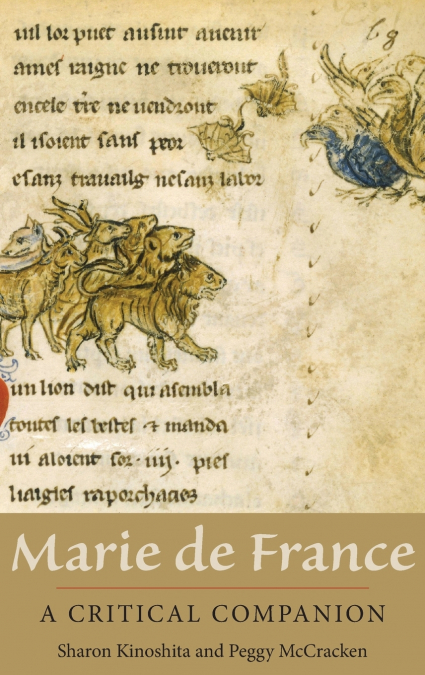 uil lor puet ausint auenir
ames raigne ne troueront
encele tre ne uendront
il isoient sanz peor
esanz trauailg nesanz labor
lg
un lion dist qui asembla
toutes les bestes ⁊ manda
ui aloient sor .iiij. piez
Marie de France
A CRITICAL COMPANION
Sharon Kinoshita and Peggy McCracken